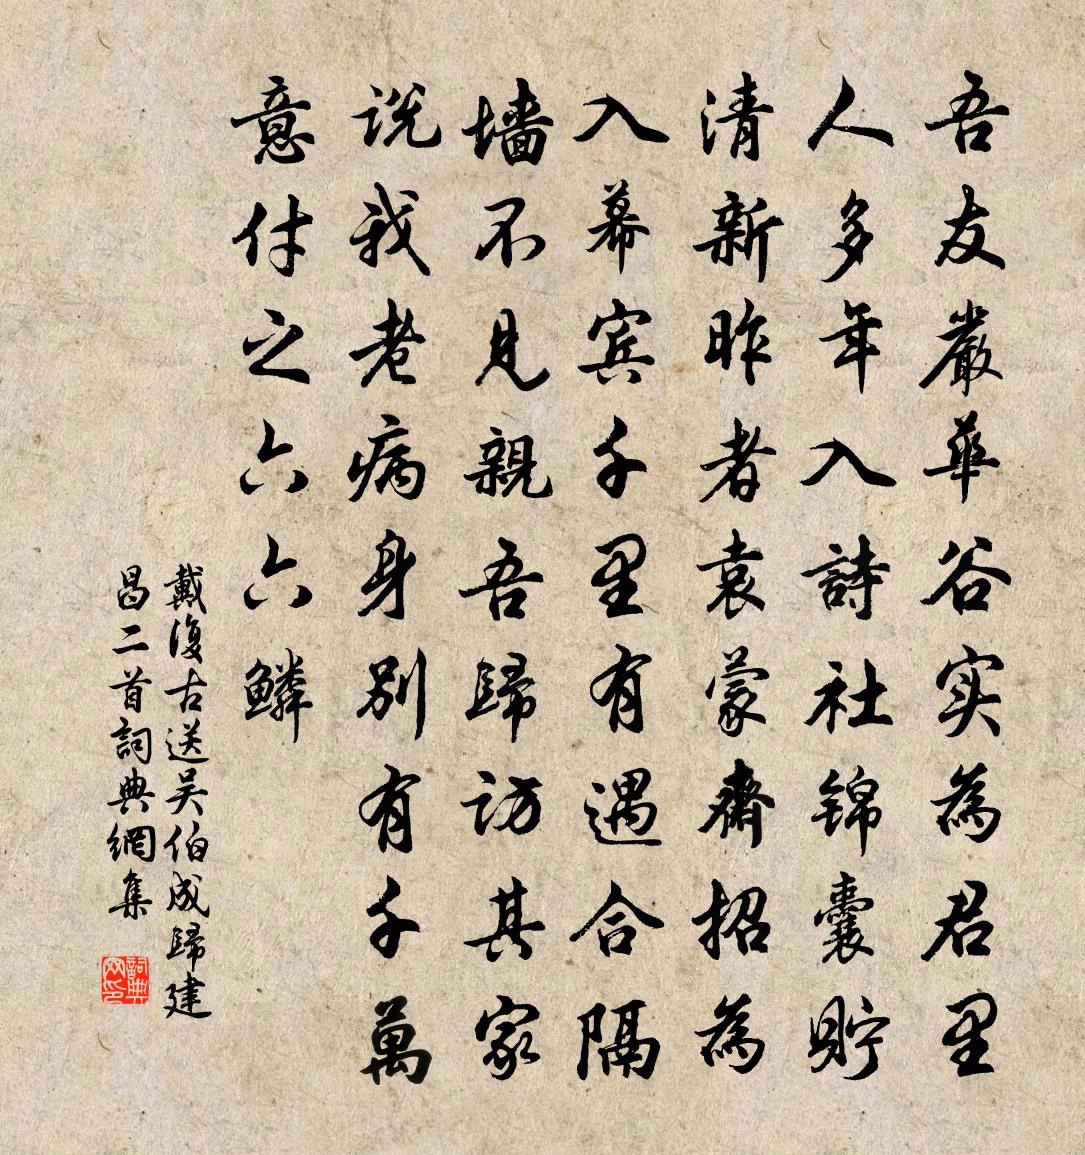 吾友嚴華谷实為君里
人多年入詩社錦囊貯
清新昨者袁蒙齋招為
入幕宾千里有遇合隔
墻不見親吾歸訪其家
説我老病身別有千萬
意付之六六鱗
戴復古送吴伯成歸建
昌二首詞典網集
詞典网印